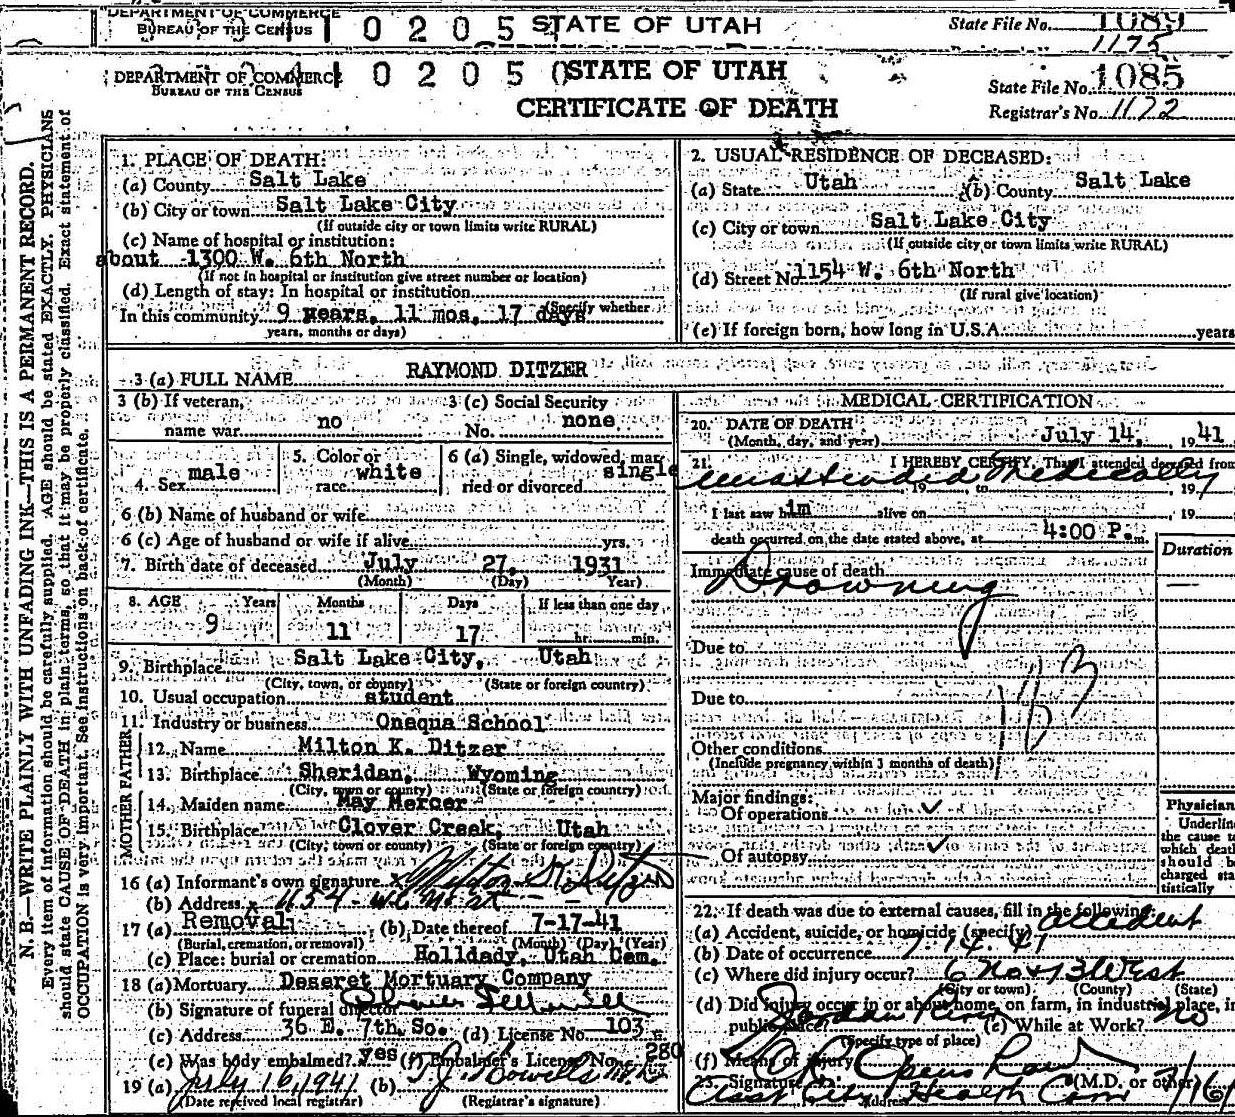 DEPARTMENT OF COMMERCE
BUREAU OF THE CENSUS
0 2 0 5
STATE OF UTAH
State File No. 1089
1175
DEPARTMENT OF COMMERCE
BUREAU OF THE CENSUS
0 2 0 5 0
STATE OF UTAH
CERTIFICATE OF DEATH
State File No. 1085
Registrar's No. 1172
N. B.—WRITE PLAINLY WITH UNFADING INK—THIS IS A PERMANENT RECORD.
Every item of information should be carefully supplied. AGE should be stated EXACTLY. PHYSICIANS
should state CAUSE OF DEATH in plain terms, so that it may be properly classified. Exact statement of
OCCUPATION is very important. See instructions on back of certificate.
1. PLACE OF DEATH:
(a) County Salt Lake
(b) City or town Salt Lake City
(If outside city or town limits write RURAL)
(c) Name of hospital or institution:
about 1300 W. 6th North
(If not in hospital or institution give street number or location)
(d) Length of stay: In hospital or institution
(Specify whether
In this community 9 years, 11 mos, 17 days
years, months or days)
2. USUAL RESIDENCE OF DECEASED:
(a) State Utah (b) County Salt Lake
(c) City or town Salt Lake City
(If outside city or town limits write RURAL)
(d) Street No. 1154 W. 6th North
(If rural give location)
(e) If foreign born, how long in U.S.A. years
3 (a) FULL NAME RAYMOND DITZER
3 (b) If veteran,
name war no
3 (c) Social Security
No. none
4. Sex male
5. Color or
race white
6 (a) Single, widowed, mar-
ried or divorced single
6 (b) Name of husband or wife
6 (c) Age of husband or wife if alive yrs.
7. Birth date of deceased July 27, 1931
(Month) (Day) Year)
8. AGE Years Months Days If less than one day
9 11 17 hr. min.
9. Birthplace Salt Lake City, Utah
(City, town, or county) (State or foreign country)
10. Usual occupation student
11. Industry or business Onequa School
FATHER
12. Name Milton K. Ditzer
13. Birthplace Sheridan, Wyoming
(City, town or county) (State or foreign country)
MOTHER
14. Maiden name May Mercer
15. Birthplace Clover Creek, Utah
(City, town or county) (State or foreign country)
16 (a) Informant's own signature x Milton K. Ditzer
(b) Address 1154 - W 6 No St
17 (a) Removal (b) Date thereof 7-17-41
(Burial, cremation, or removal) (Month) (Day) (Year)
(c) Place: burial or cremation Holldady, Utah Cem.
18 (a) Mortuary Deseret Mortuary Company
(b) Signature of funeral director
(c) Address 36 E. 7th. So. (d) License No. 103
(e) Was body embalmed? yes (f) Embalmer's License No. 280
19 (a) July 16 1941 (b)
(Date received local registrar) (Registrar's signature)
MEDICAL CERTIFICATION
20. DATE OF DEATH
(Month, day, and year) July 14, 1941
21. I HEREBY CERTIFY, That I attended deceased from
unattended Medically, 19 , to , 19
I last saw him alive on , 19
death occurred on the date stated above, at 4:00 P. m.
Duration
Immediate cause of death
Drowning —
Due to
183
Due to
Other conditions
(Include pregnancy within 3 months of death)
Major findings:
Of operations ✓
Of autopsy ✓
Physician
Underline
the cause to
which death
should be
charged sta-
tistically
22. If death was due to external causes, fill in the following:
(a) Accident, suicide, or homicide (specify) accident
(b) Date of occurrence 7.14.41
(c) Where did injury occur? 6 No & 13 West
(City or town) (County) (State)
(d) Did injury occur in or about home, on farm, in industrial place, in
public place? Jordan River (e) While at Work? no
(Specify type of place)
(f) Means of injury
23. Signature (M.D. or other) 7/16/
Address City Health Com